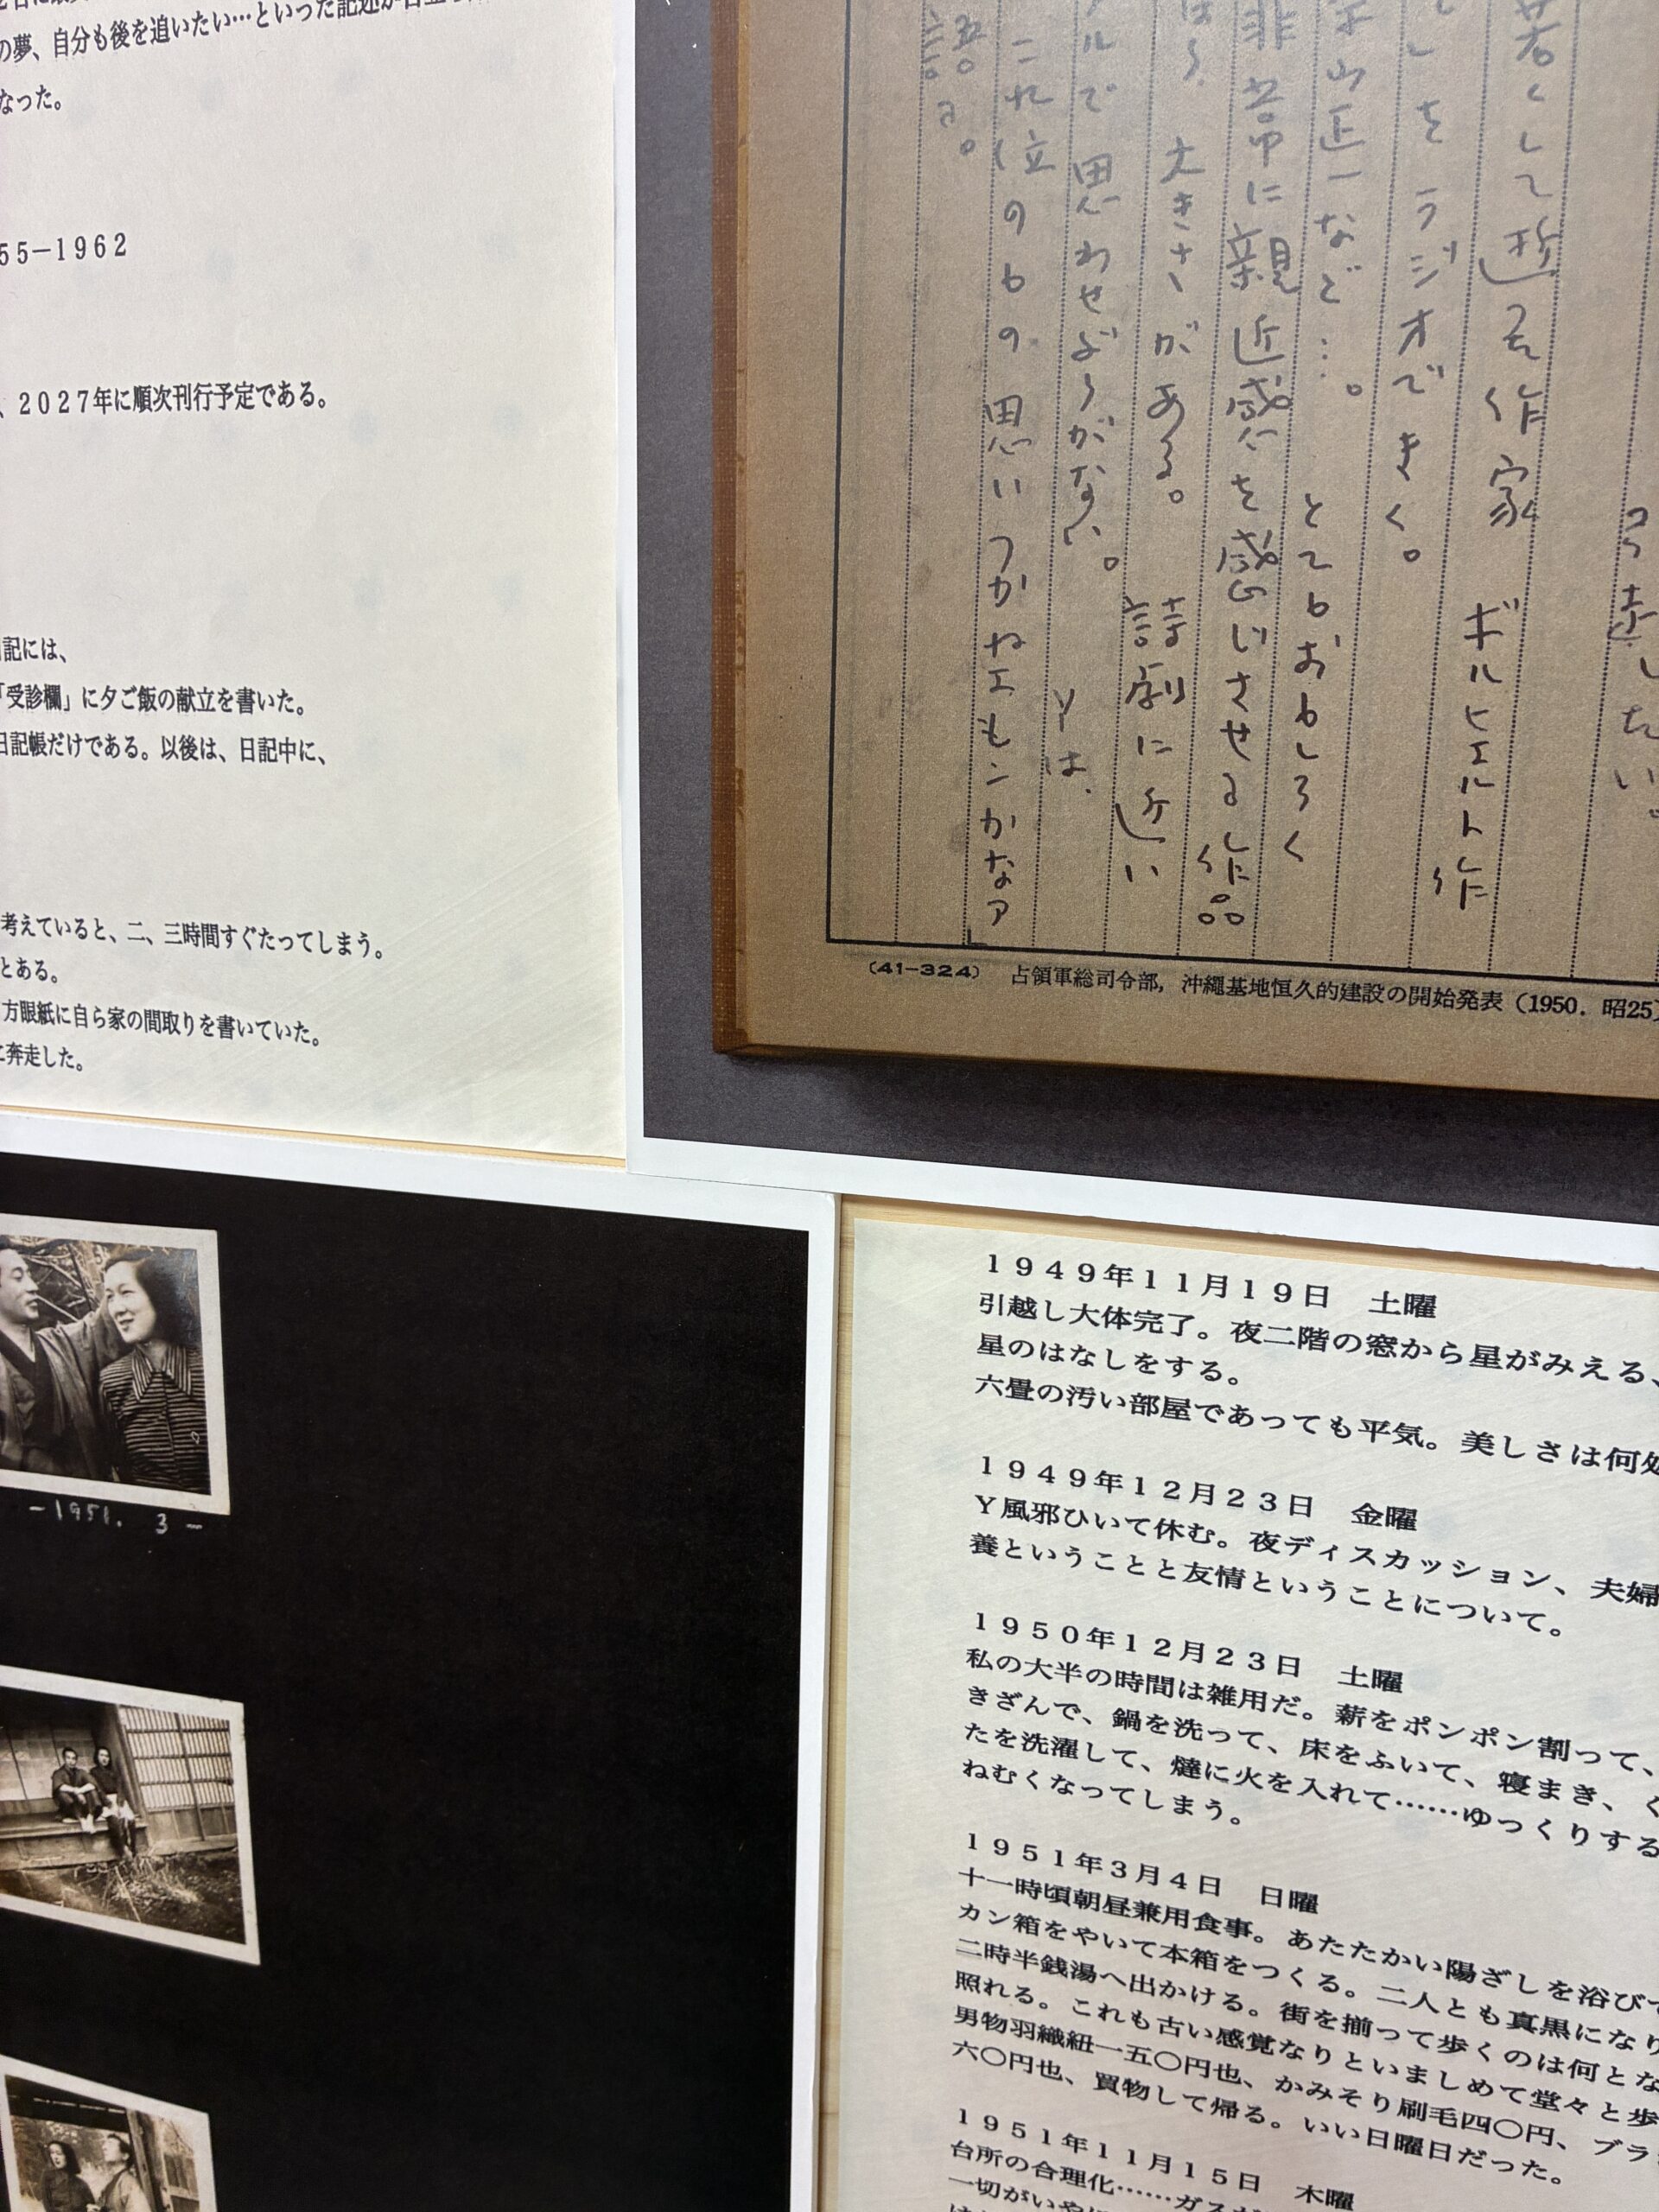 の夢、自分も後を追いたい…といった記述が
なった。
55－1962
、2027年に順次刊行予定である。
日記には、
「受診欄」に夕ご飯の献立を書いた。
日記帳だけである。以後は、日記中に、
考えていると、二、三時間すぐたってしまう。
とある。
方眼紙に自ら家の間取りを書いていた。
に奔走した。
若くして逝える作家　ボルヒェルト作
をラジオできく。
正一など…。　とてもおもしろく
非常に親近感を感じさせる作品
大きさがある。　詩劇に近い
ルで思わせようがない。　Yは、
これ位のもの思いつかねエもンかなア
語る。
(41-324)　占領軍総司令部，沖縄基地恒久的建設の開始発表（1950．昭25）
－1951. 3－
1949年11月19日　土曜
引越し大体完了。夜二階の窓から星がみえる、
星のはなしをする。
六畳の汚い部屋であっても平気。美しさは何処
1949年12月23日　金曜
Y風邪ひいて休む。夜ディスカッション、夫婦
養ということと友情ということについて。
1950年12月23日　土曜
私の大半の時間は雑用だ。薪をポンポン割って、
きざんで、鍋を洗って、床をふいて、寝まき、く
たを洗濯して、燵に火を入れて……ゆっくりする
ねむくなってしまう。
1951年3月4日　日曜
十一時頃朝昼兼用食事。あたたかい陽ざしを浴びて
カン箱をやいて本箱をつくる。二人とも真黒になり
二時半銭湯へ出かける。街を揃って歩くのは何とな
照れる。これも古い感覚なりといましめて堂々と歩
男物羽織紐一五〇円也、かみそり刷毛四〇円、ブラ
六〇円也、買物して帰る。いい日曜日だった。
1951年11月15日　木曜
台所の合理化……ガス
一切がいや